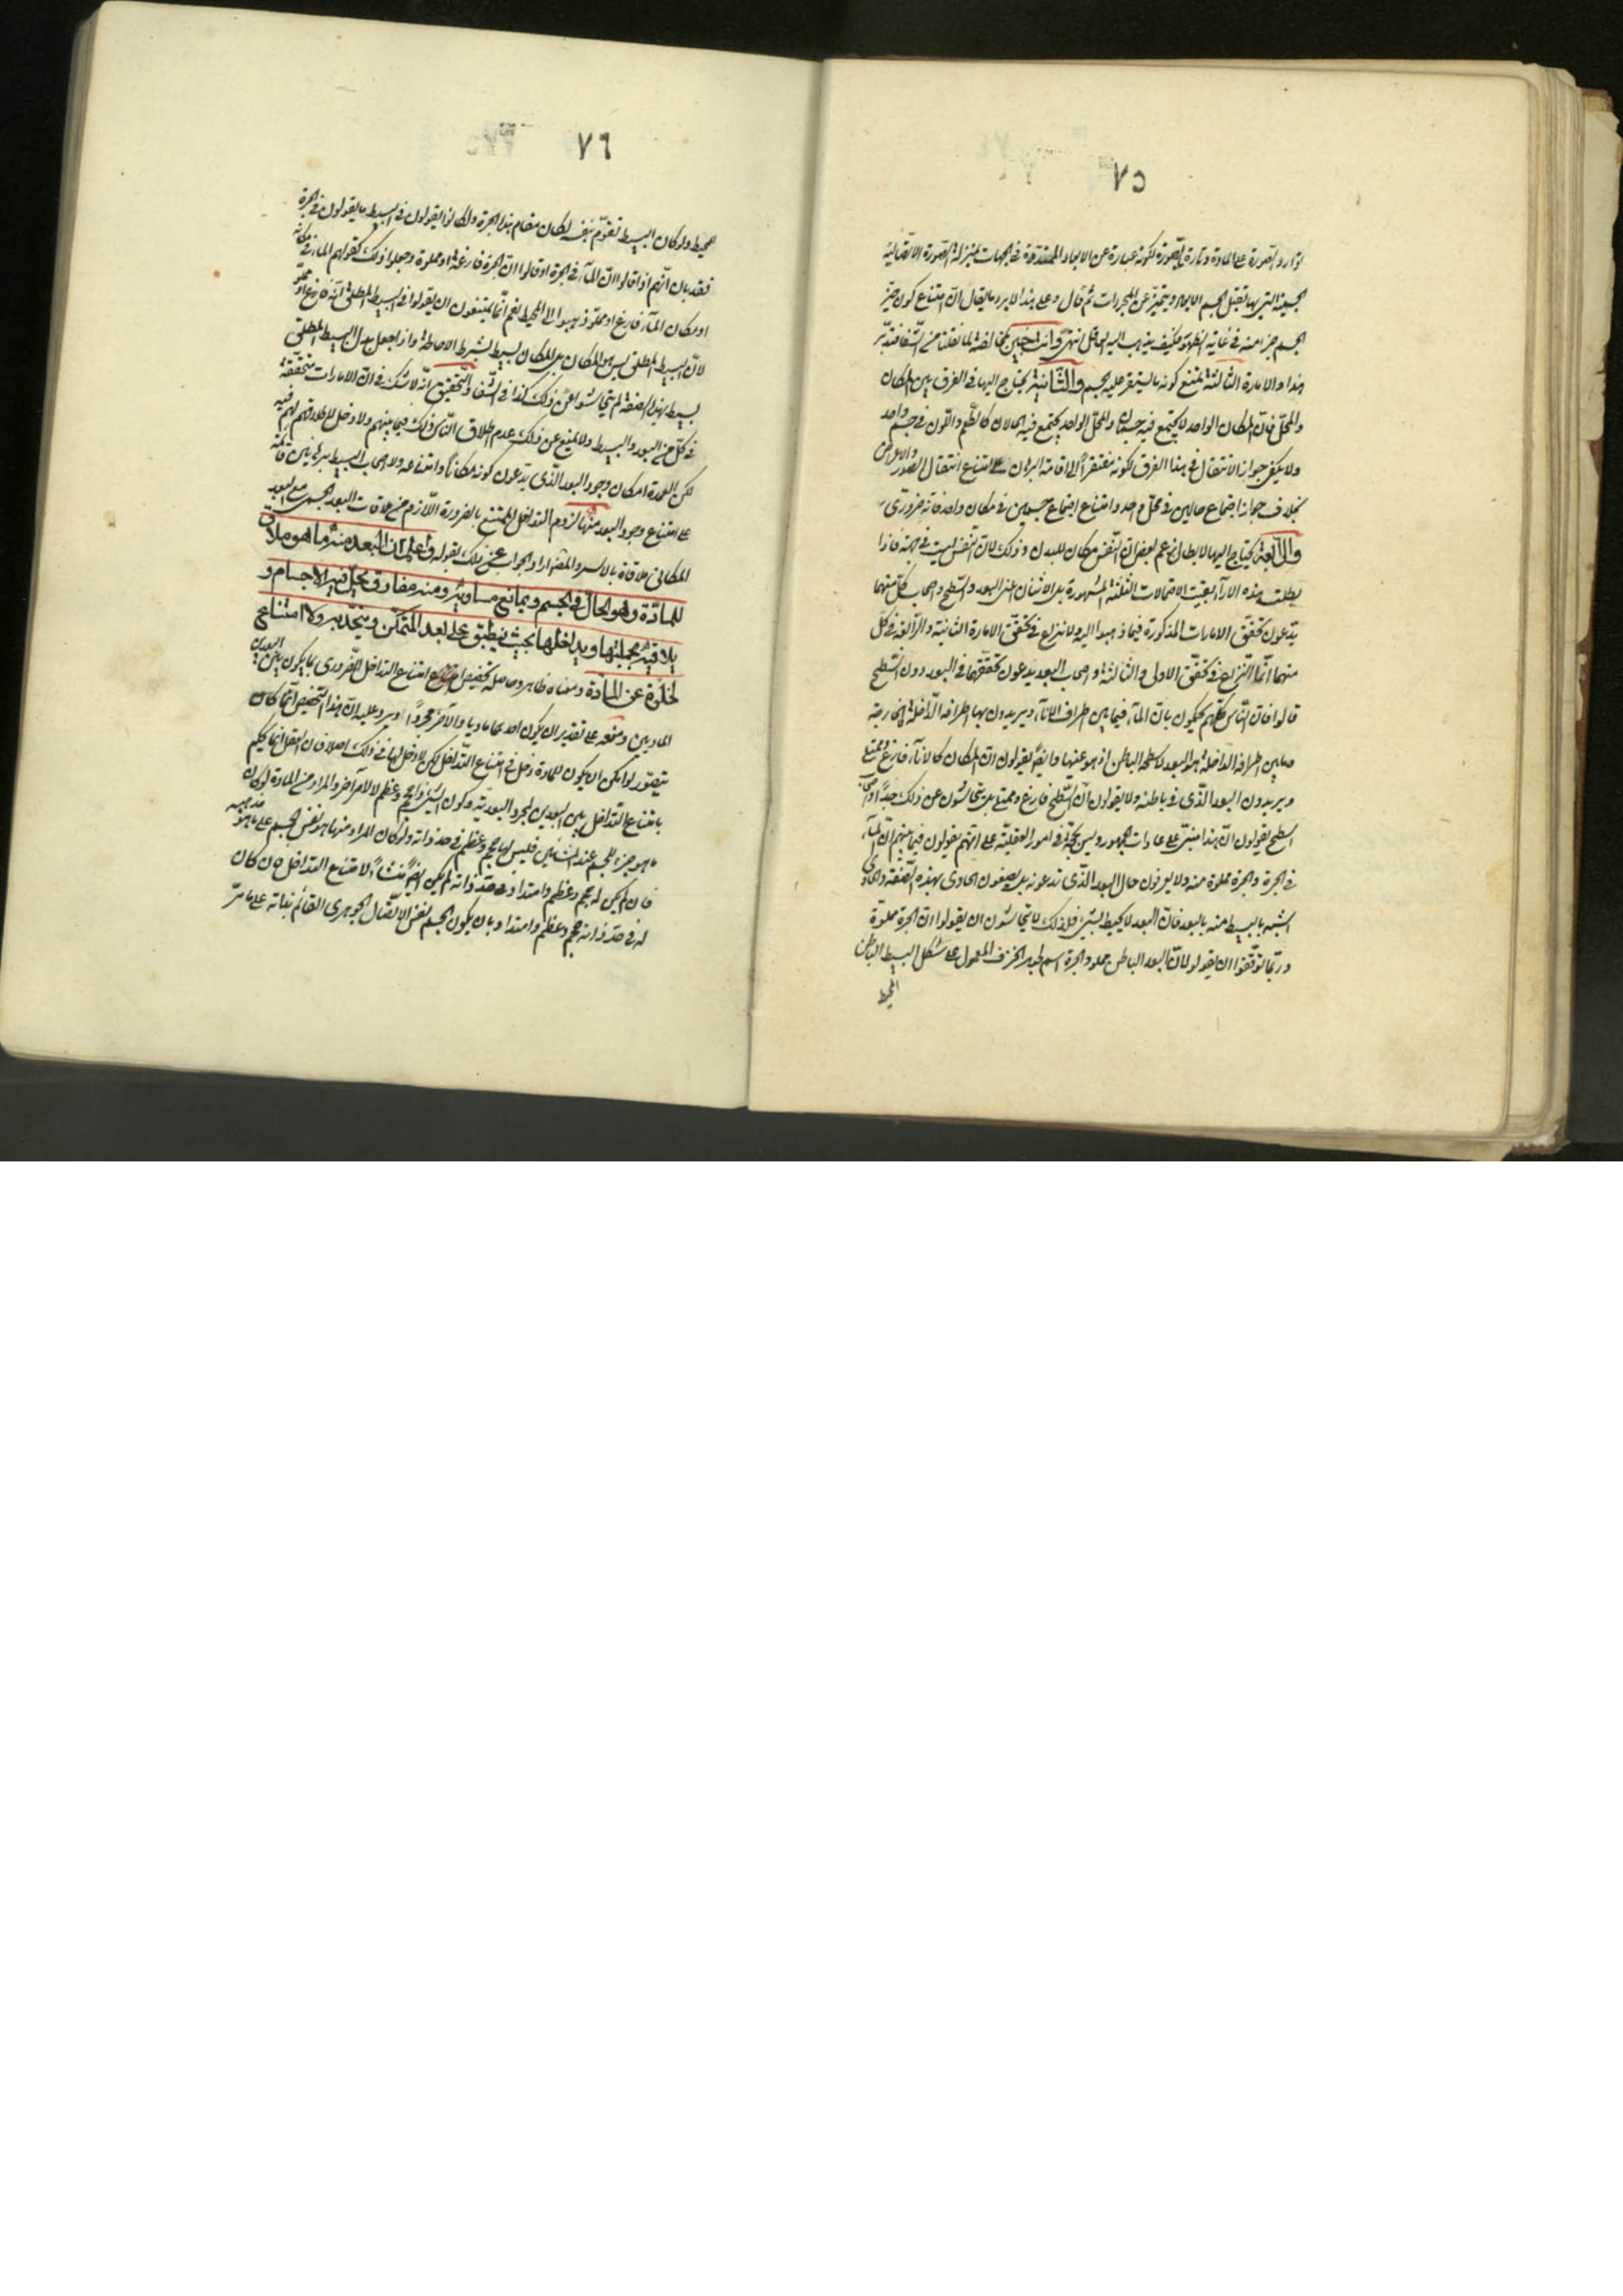 ٧٥
توارد الصورة على المادة وتارة بالصورة لكونه عبارة عن الابعاد الممتدة في الجهات بمنزلة الصورة الاتصالية
الجسمية التي بها يقبل الجسم الابعاد ويتميز عن المجردات ثم قال وعلى هذا لا يرد ما يقال ان امتناع كون حيز
الجسم جزءا منه في غاية الظهور فكيف يذهب اليه العاقل انتهى وانت خبير بمخالفة لما نقلنا من الشفا فتدبر
هذا والامارة الثالثة تمنع كونه ما يستقر عليه الجسم والثانية يحتاج اليها في الفرق بين المكان
والمحل فان المكان الواحد لا يجتمع فيه جسمان والمحل الواحد يجتمع فيه الحالان كالطعم واللون في جسم واحد
ولا يكفي جواز الانتقال في هذا الفرق لكونه مفتقرا الى اقامة البرهان على امتناع انتقال الصور والاعراض
بخلاف جواز اجتماع حالين في محل واحد وامتناع اجتماع جسمين في مكان واحد فانه ضروري
والرابعة يحتاج اليها لابطال زعم بعض ان النفس مكان للبدن وذلك لان النفس ليست في جهة فاذا
بطلت هذه الآراء بقيت الاحتمالات الثلثة المشهورة بل الاثنان اعنى البعد والسطح واصحاب كل منهما
يدعون تحقق الامارات المذكورة فيما ذهبوا اليه ولا نزاع في تحقق الامارة الثانية والرابعة في كل
منهما انما النزاع في تحقق الاولى والثالثة واصحاب البعد يدعون تحققهما في البعد دون السطح
قالوا فان الناس كلهم يحكمون بان الماء فيما بين اطراف الاناء ويريدون بها اطرافه الداخلة لا الخارجة
وما بين اطرافه الداخلة هو البعد لا سطحه الباطن اذ هو عينها وايضا يقولون ان المكان كالاناء فارغ وممتلئ
ويريدون البعد الذي في باطنه ولا يقولون ان السطح فارغ وممتلئ بل يتحاشون عن ذلك جدا واصحاب
السطح يقولون ان هذا مبني على عادات الجمهور وليس بحجة في امور العقلية على انهم يقولون فيما بينهم ان الماء
في الجرة والجرة مملوة منه ولا يعرفون حال البعد الذي تدعونه بل يصفون الحاوي بهذه الصفة والحاوي
اشبه بالبسيط منه بالبعد فان البعد لا يحيط بشئ فلذلك لا يتحاشون ان يقولوا ان الجرة مملوة
وربما توقفوا ان يقولوا ان البعد الباطن مملو والجرة اسم لجوهر الخزف المعمول على شكل البسيط الباطن
المحيط
٧٦
المحيط ولو كان البسيط تقوم بنفسه لكان مقام هذا الجرة ولكانوا يقولون في البسيط ما يقولون في الجرة
فقد بان انهم اذا قالوا ان الماء في الجرة او قالوا ان الجرة فارغة او مملوة وجعلوا ذلك كقولهم الماء في مكانه
او مكان الماء فارغ او مملو ذهبوا الى المحيط نعم انما يمتنعون ان يقولوا في البسيط المطلق انه فارغ او مملو
لان البسيط المطلق ليس هو المكان بل المكان بسيط بشرط الاحاطة واذا جعل بدل البسيط المطلق
بسيط بهذه الصفة لم يتحاشوا عن ذلك كذا في الشفا والتحقيق انه لا شك في ان الامارات متحققة
في كل من البعد والبسيط ولا يمنع عن ذلك عدم اطلاق الناس ذلك فيما بينهم ولا دخل لاطلاقهم لهم فيه
لكن العمدة امكان وجود البعد الذي يدعون كونه مكانا وامتناعه ولاصحاب البسيط براهين قائمة
على امتناع وجود البعد منها لزوم التداخل الممتنع بالضرورة اللازم من ملاقات البعد الجسمي مع البعد
المكاني ملاقاة بالاسر والمص اراد الجواب عن ذلك بقوله واعلم ان البعد منه ما هو ملاق
للمادة وهو الحال في الجسم ويمانع مساويه ومنه مفارق يحل فيه الاجسام و
يلاقيه بجملتها ويداخلها بحيث ينطبق على بعد المتمكن ويتحد به ولا امتناع
لخلوه عن المادة ومعناه ظاهر وحاصله تخصيص امتناع التداخل الضروري بما يكون بين البعدين
الماديين ومنعه على تقدير ان يكون احدهما ماديا والآخر مجردا ويرد عليه ان هذا التخصيص انما كان
يتصور لو امكن ان يكون للمادة دخل في امتناع التداخل لكن لا دخل لها في ذلك اصلا فان العقل انما يحكم
بامتناع التداخل بين البعدين لمجرد البعدية وكون الشئ ذا حجم وعظم لا لامر آخر والمراد من المادة لو كان
ما هو جزء الجسم عند المشائين فليس لها حجم وعظم في حد ذاته ولو كان المراد منها ما هو نفس الجسم على ما هو مذهبه
فان لم يكن له حجم وعظم وامتداد في حد ذاته لم يكن ايضا منشأ لامتناع التداخل وان كان
له في حد ذاته حجم وعظم وامتداد بان يكون الجسم نفس الاتصال الجوهري القائم بذاته على ما مر